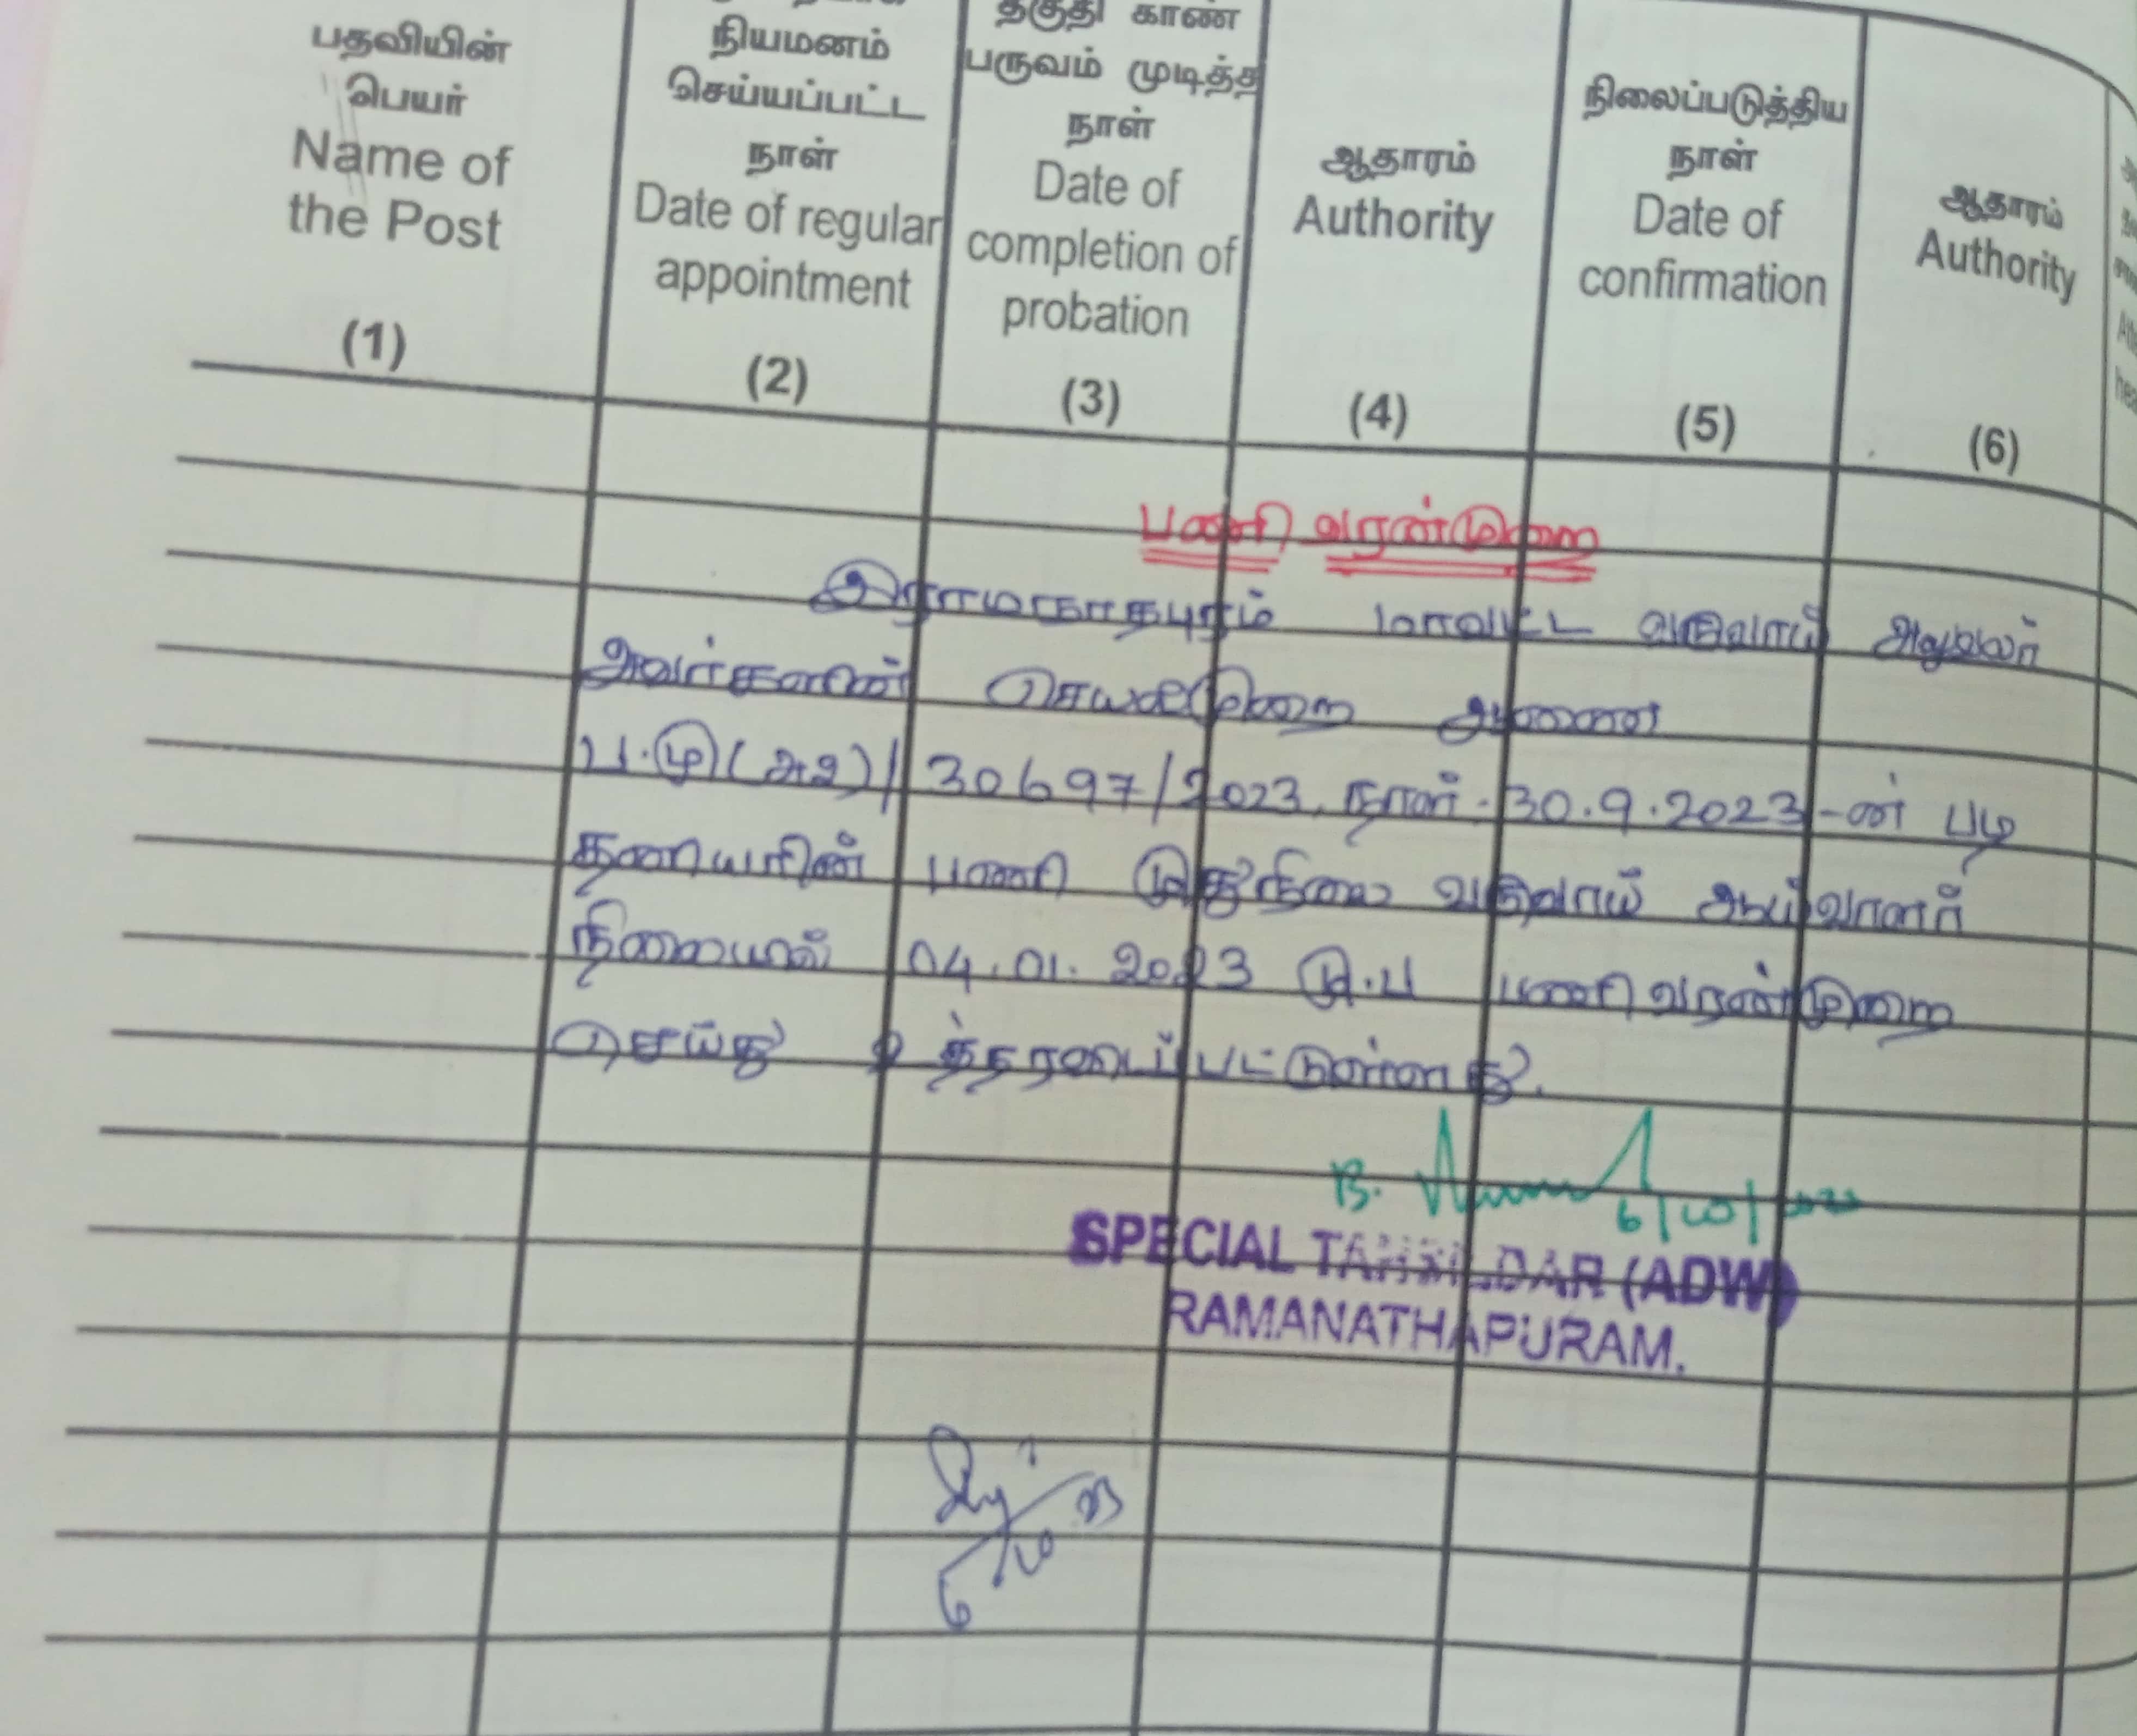 பதவியின்
பெயர்
Name of
the Post
(1)
நியமனம்
செய்யப்பட்ட
நாள்
Date of regular
appointment
(2)
தகுதி காண்
பருவம் முடித்த
நாள்
Date of
completion of
probation
(3)
ஆதாரம்
Authority
(4)
நிலைப்படுத்திய
நாள்
Date of
confirmation
(5)
ஆதாரம்
Authority
(6)
பணி வரன்முறை
இராமநாதபுரம் மாவட்ட வருவாய் அலுவலர்
அவர்களின் செயல்முறை ஆணை
ப.மு(அ2)/30697/2023, நாள். 30.9.2023-ன் படி
தணியாரின் பணி முதுநிலை வருவாய் ஆய்வாளர்
நிலையில் 04.01.2023 மு.ப பணிவரன்முறை
செய்து உத்தரவிடப்பட்டுள்ளது.
B.
6/10/2023
SPECIAL TAHSILDAR (ADW)
RAMANATHAPURAM.
6/10/23